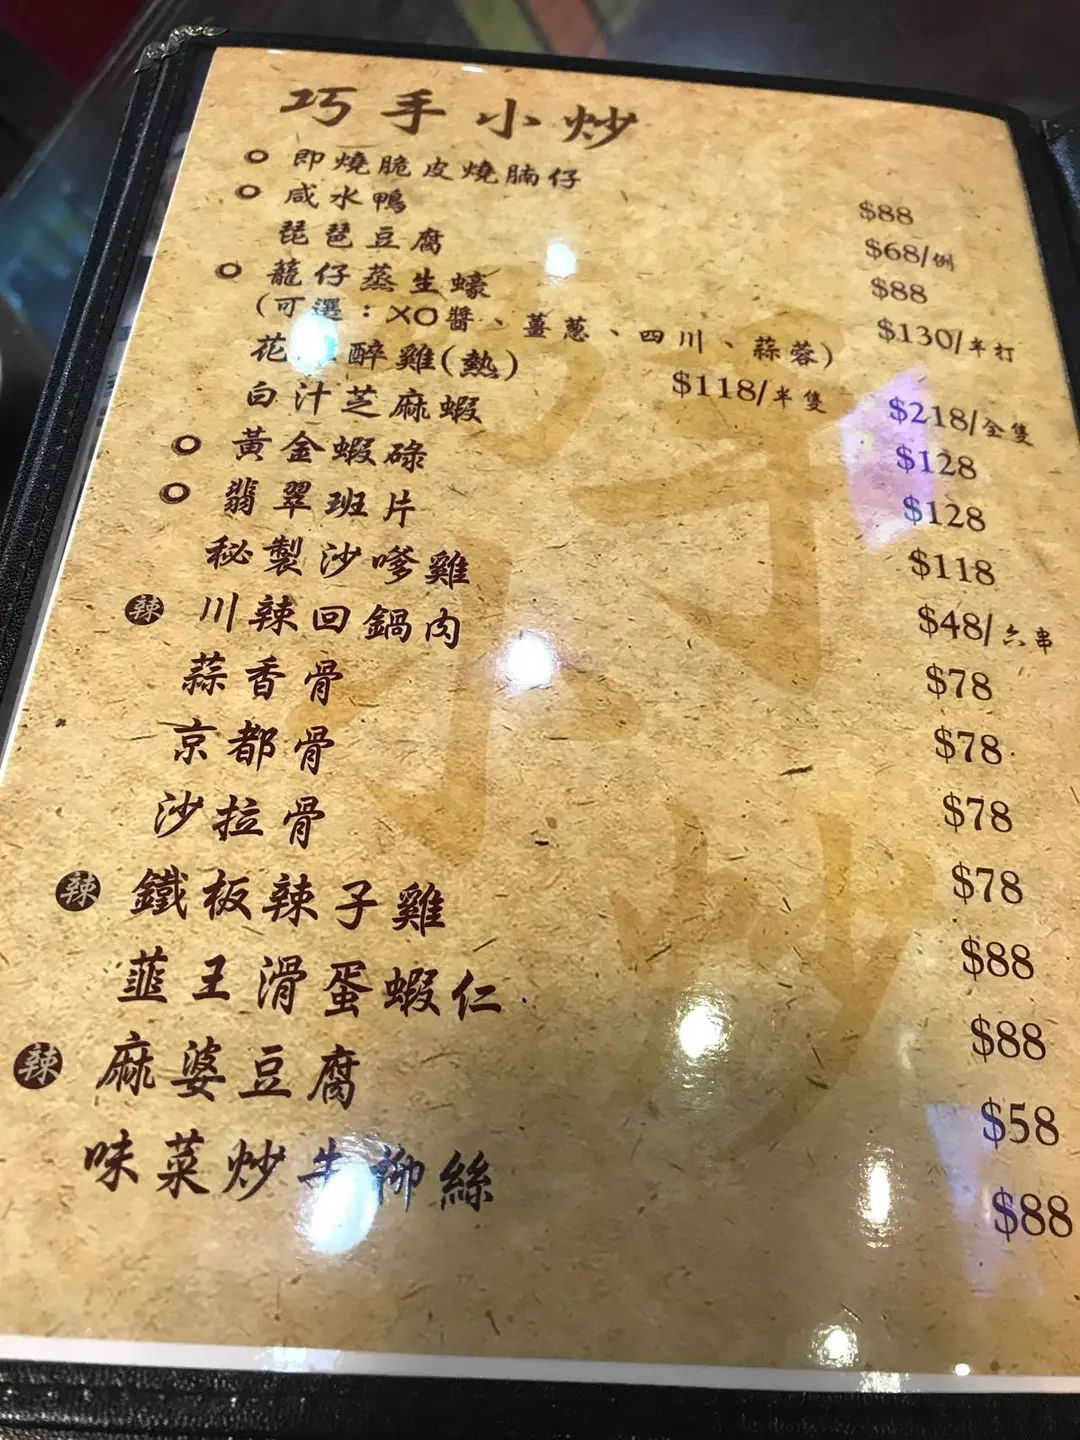 巧手小炒
即燒脆皮燒腩仔 $88
咸水鴨 $68/例
琵琶豆腐 $88
籠仔蒸生蠔 $130/半打
(可選：XO醬、薑蔥、四川、蒜蓉)
花 醉雞(熱) $118/半隻 $218/全隻
白汁芝麻蝦 $128
黃金蝦碌 $128
翡翠班片 $118
秘製沙嗲雞 $48/六串
辣 川辣回鍋肉 $78
蒜香骨 $78
京都骨 $78
沙拉骨 $78
辣 鐵板辣子雞 $88
韮王滑蛋蝦仁 $88
辣 麻婆豆腐 $58
味菜炒牛柳絲 $88